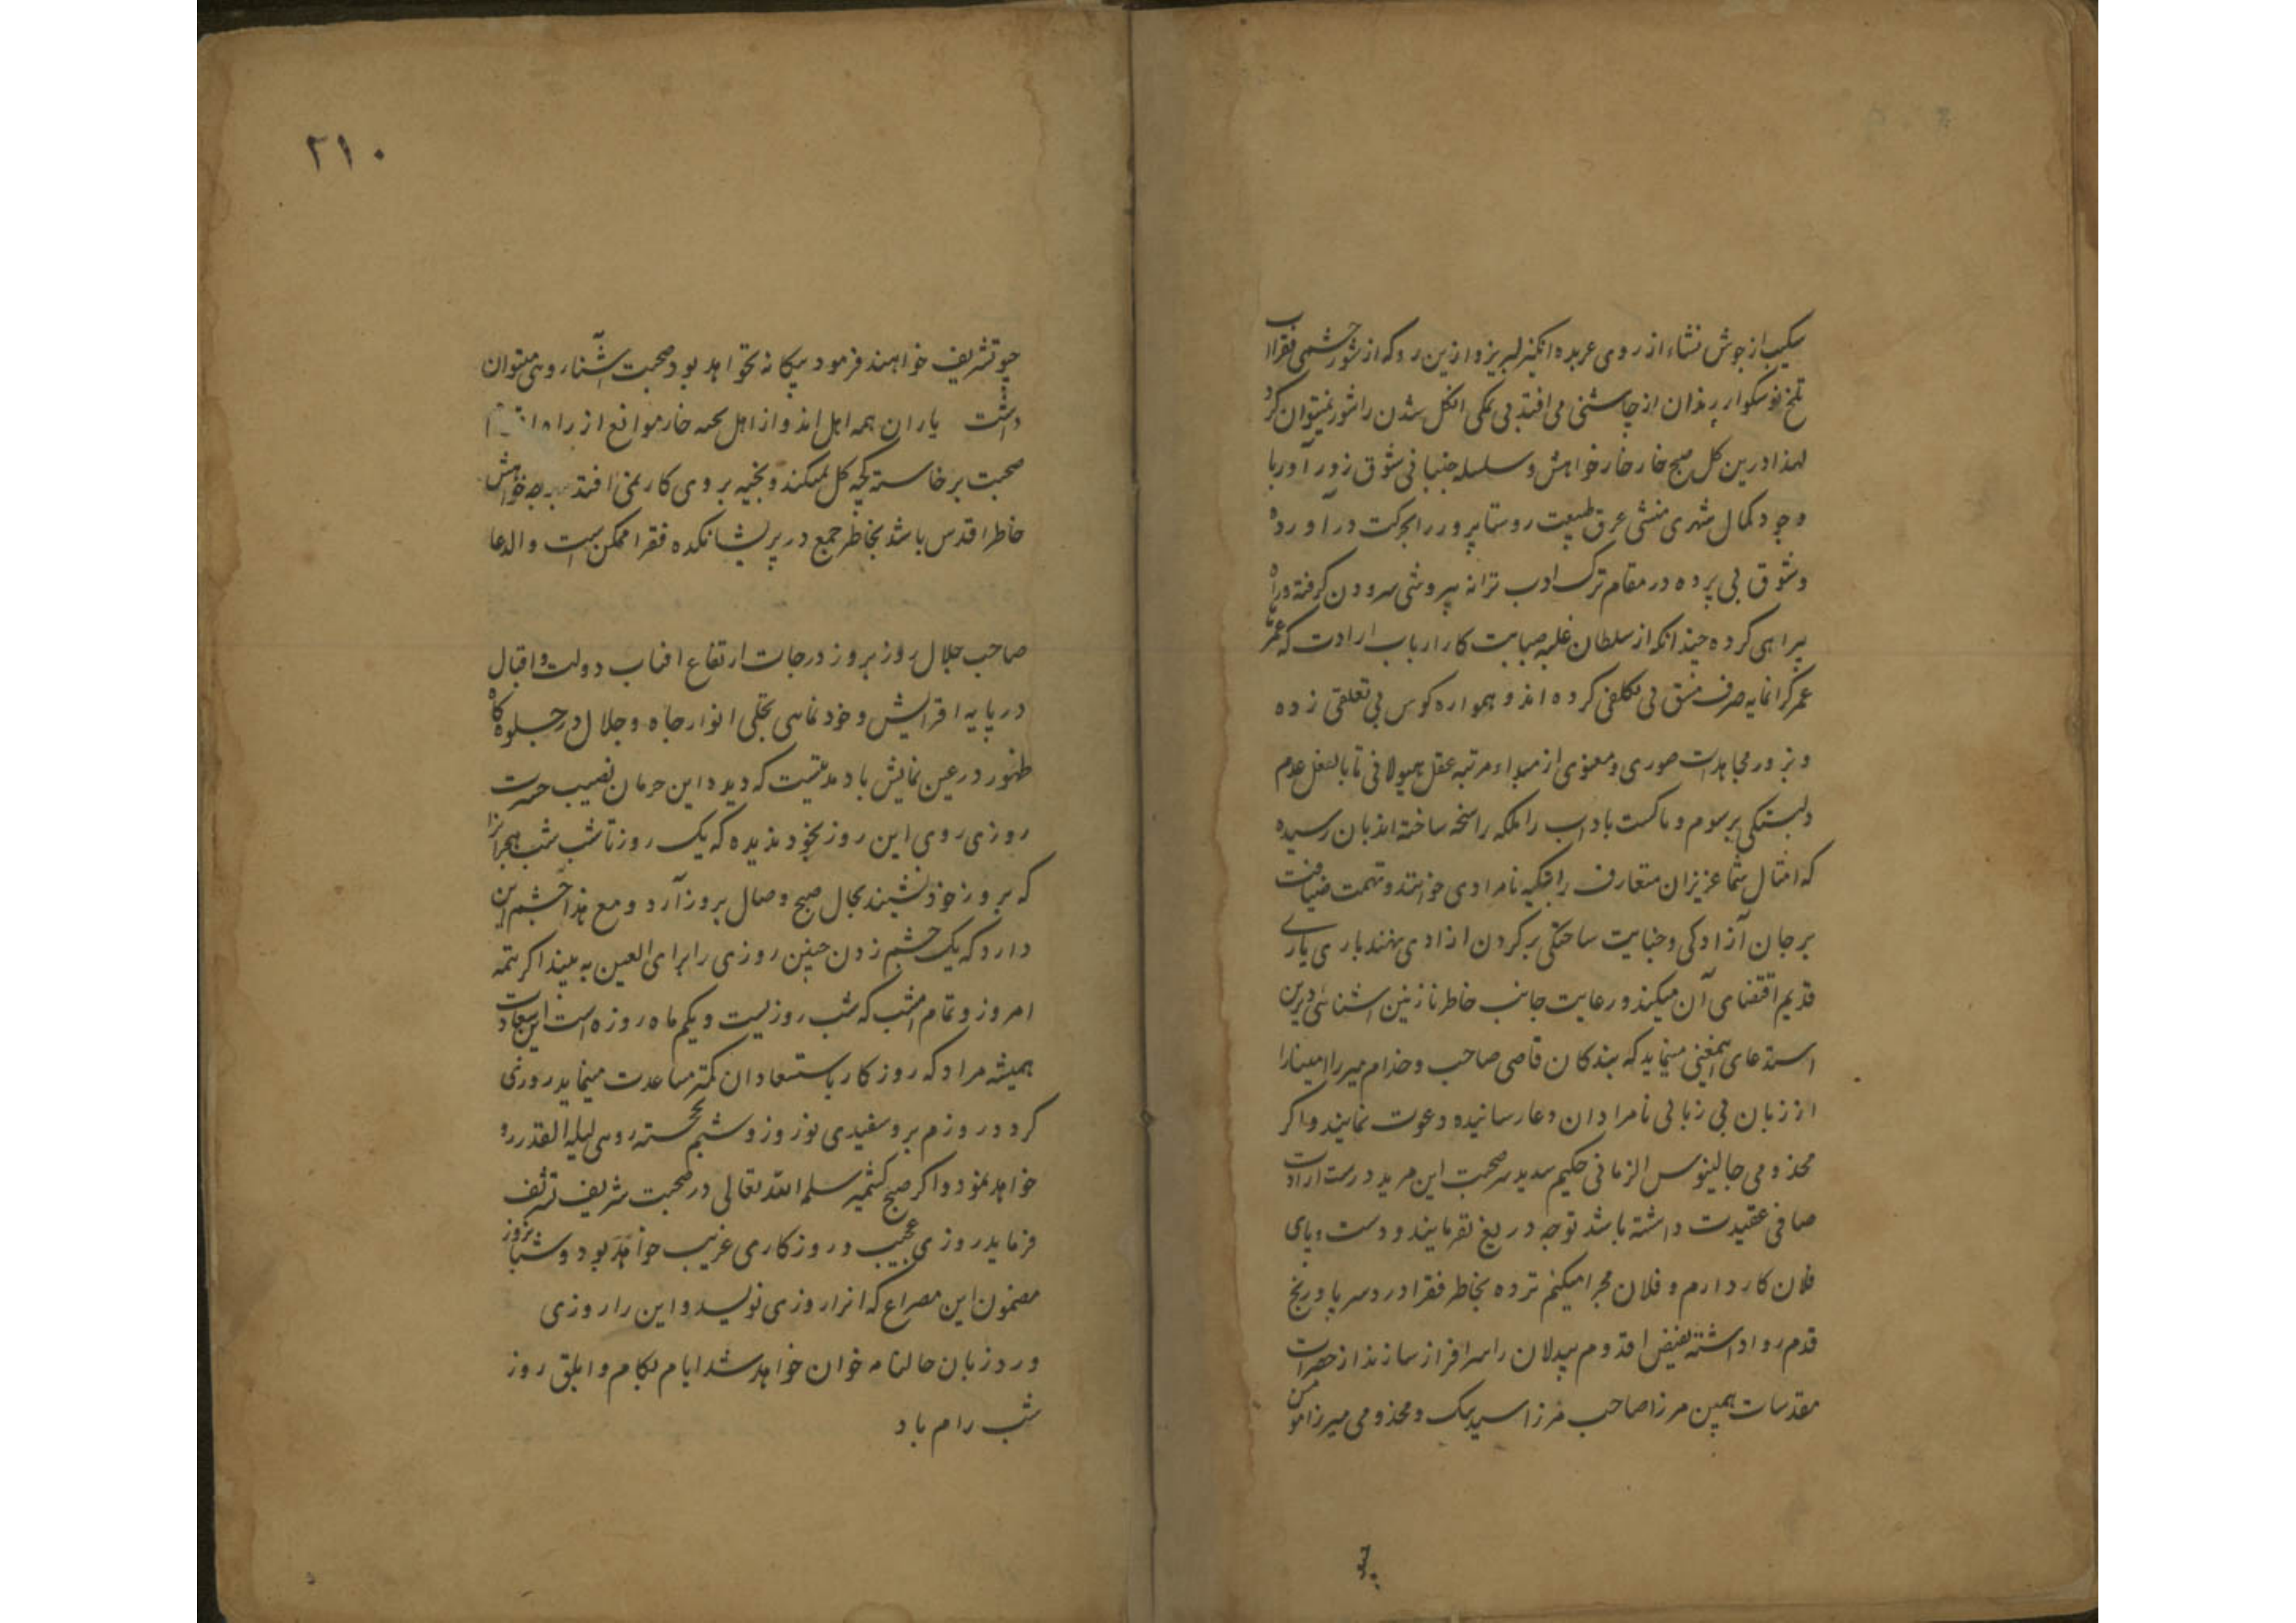 سکیب از جوش نشاء از روی عربده انگیز لبریز و ازین رو که از شور چشمی فقرا
تلخ نوشکوار بدان از چاشنی می افتد بی نمکی انکل شدن را شور نمیتوان کرد
لهذا درین کل صبح خار خار خواهش و سلسله جنبانی شوق زور آور با
وجود کمال شهری منشی عرق طبیعت روستا پرور را بحرکت در آورده
و شوق بی پرده در مقام ترک ادب ترانه بیروشی سرودن گرفته و راه
بیراهی کرده چندانکه از سلطان غلبه صبابت کار ارباب ارادت که عمرها
عمر کرانمایه صرف مشق بی تکلفی کرده اند و همواره کوس بی تعلقی زده
و بزور مجاهدات صوری و معنوی از مبداء مرتبه عقل هیولانی تا بالفعل عدم
دلبستکی برسوم و ماکست باداب را ملکه راسخه ساخته اند بان رسیده
که امثال شما عزیزان متعارف را بتکیه نامرادی خوانند و تهمت ضیافت
بر جان آزادکی و جنایت ساختکی بر کردن ازادی نهند باری یاری
قدیم اقتضای آن میکند و رعایت جانب خاطر نازنین اشنائی دیرین
استدعای همغینی مینماید که بندکان قاضی صاحب و خدام میر را امینارا
از زبان بی زبانی نامرادان دعا رسانیده دعوت نمایند و اکر
مخدومی جالینوس الزمانی حکیم سدید سر صحبت این مرید درست ارادت
صافی عقیدت داشته باشد توجه دریغ نفرمایند و دست و پای
فلان کار دارم و فلان مجرا میکنم نزده بخاطر فقرا درد سر پا و رنج
قدم روا داشته بفیض قدوم بیدلان را سرافراز سازند از حضرات
مقدسات همین مرزا صاحب مرزا سید بیک و مخدومی میرزا مومن
چو
۲۱۰
چو تشریف خواهند فرمود بیکانه نخواهد بود و صحبت آشنا رویی میتوان
داشت یاران همه اهل اند و از اهل همه خار موانع از راه
صحبت برخاسته بخیه کل نمیکند و بخیه بروی کار نمی افتد هر چه خواهش
خاطر اقدس باشد بخاطر جمع در پریشانکده فقرا ممکن است والدعا
صاحب جلال روز بروز درجات ارتفاع افتاب دولت و اقبال
در پایه افزایش و خودنمایی تجلی انوار جاه و جلال در جلوه کاه
ظهور در عین نمایش باد مدتیست که دیده این حرمان نصیب حسرت
روزی روی این روز بخود ندیده که یک روز تا شب شب هجرانرا
که بروز خود نشیند بحال صبح وصال بروز آرد و مع هذا چشم این
دارد که یک چشم زدن چنین روزی را برای العین به بیند اکر تتمه
امروز و تمام امشب که شب روز بیست و یکم ماه روزه است این سعادت
همیشه مراد که روزکار با مستعادان کمتر مساعدت مینماید روزی
کردد روزم بروسفیدی نوروز و شبم خجسته رویی لیلة القدر رو
خواهد نمود و اکر صبح کشمیر سلمه الله تعالی در صحبت شریف تشریف
فرماید روزی عجیب و روزکاری غریب خواهد بود و شبانروز
مضمون این مصراع که انرا روزی نویسد و این را روزی
ورد زبان حالنامه خوان خواهد شد ایام بکام و ابلق روز
شب رام باد